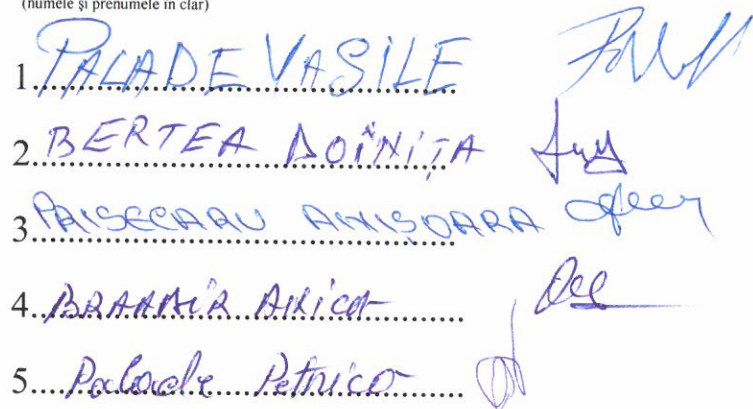 (numele și prenumele în clar)
1. PALADE VASILE
2. BERTEA DOINIȚA
3. PRISECARU ANIȘOARA
4. ANICA
5. Palade Petrica